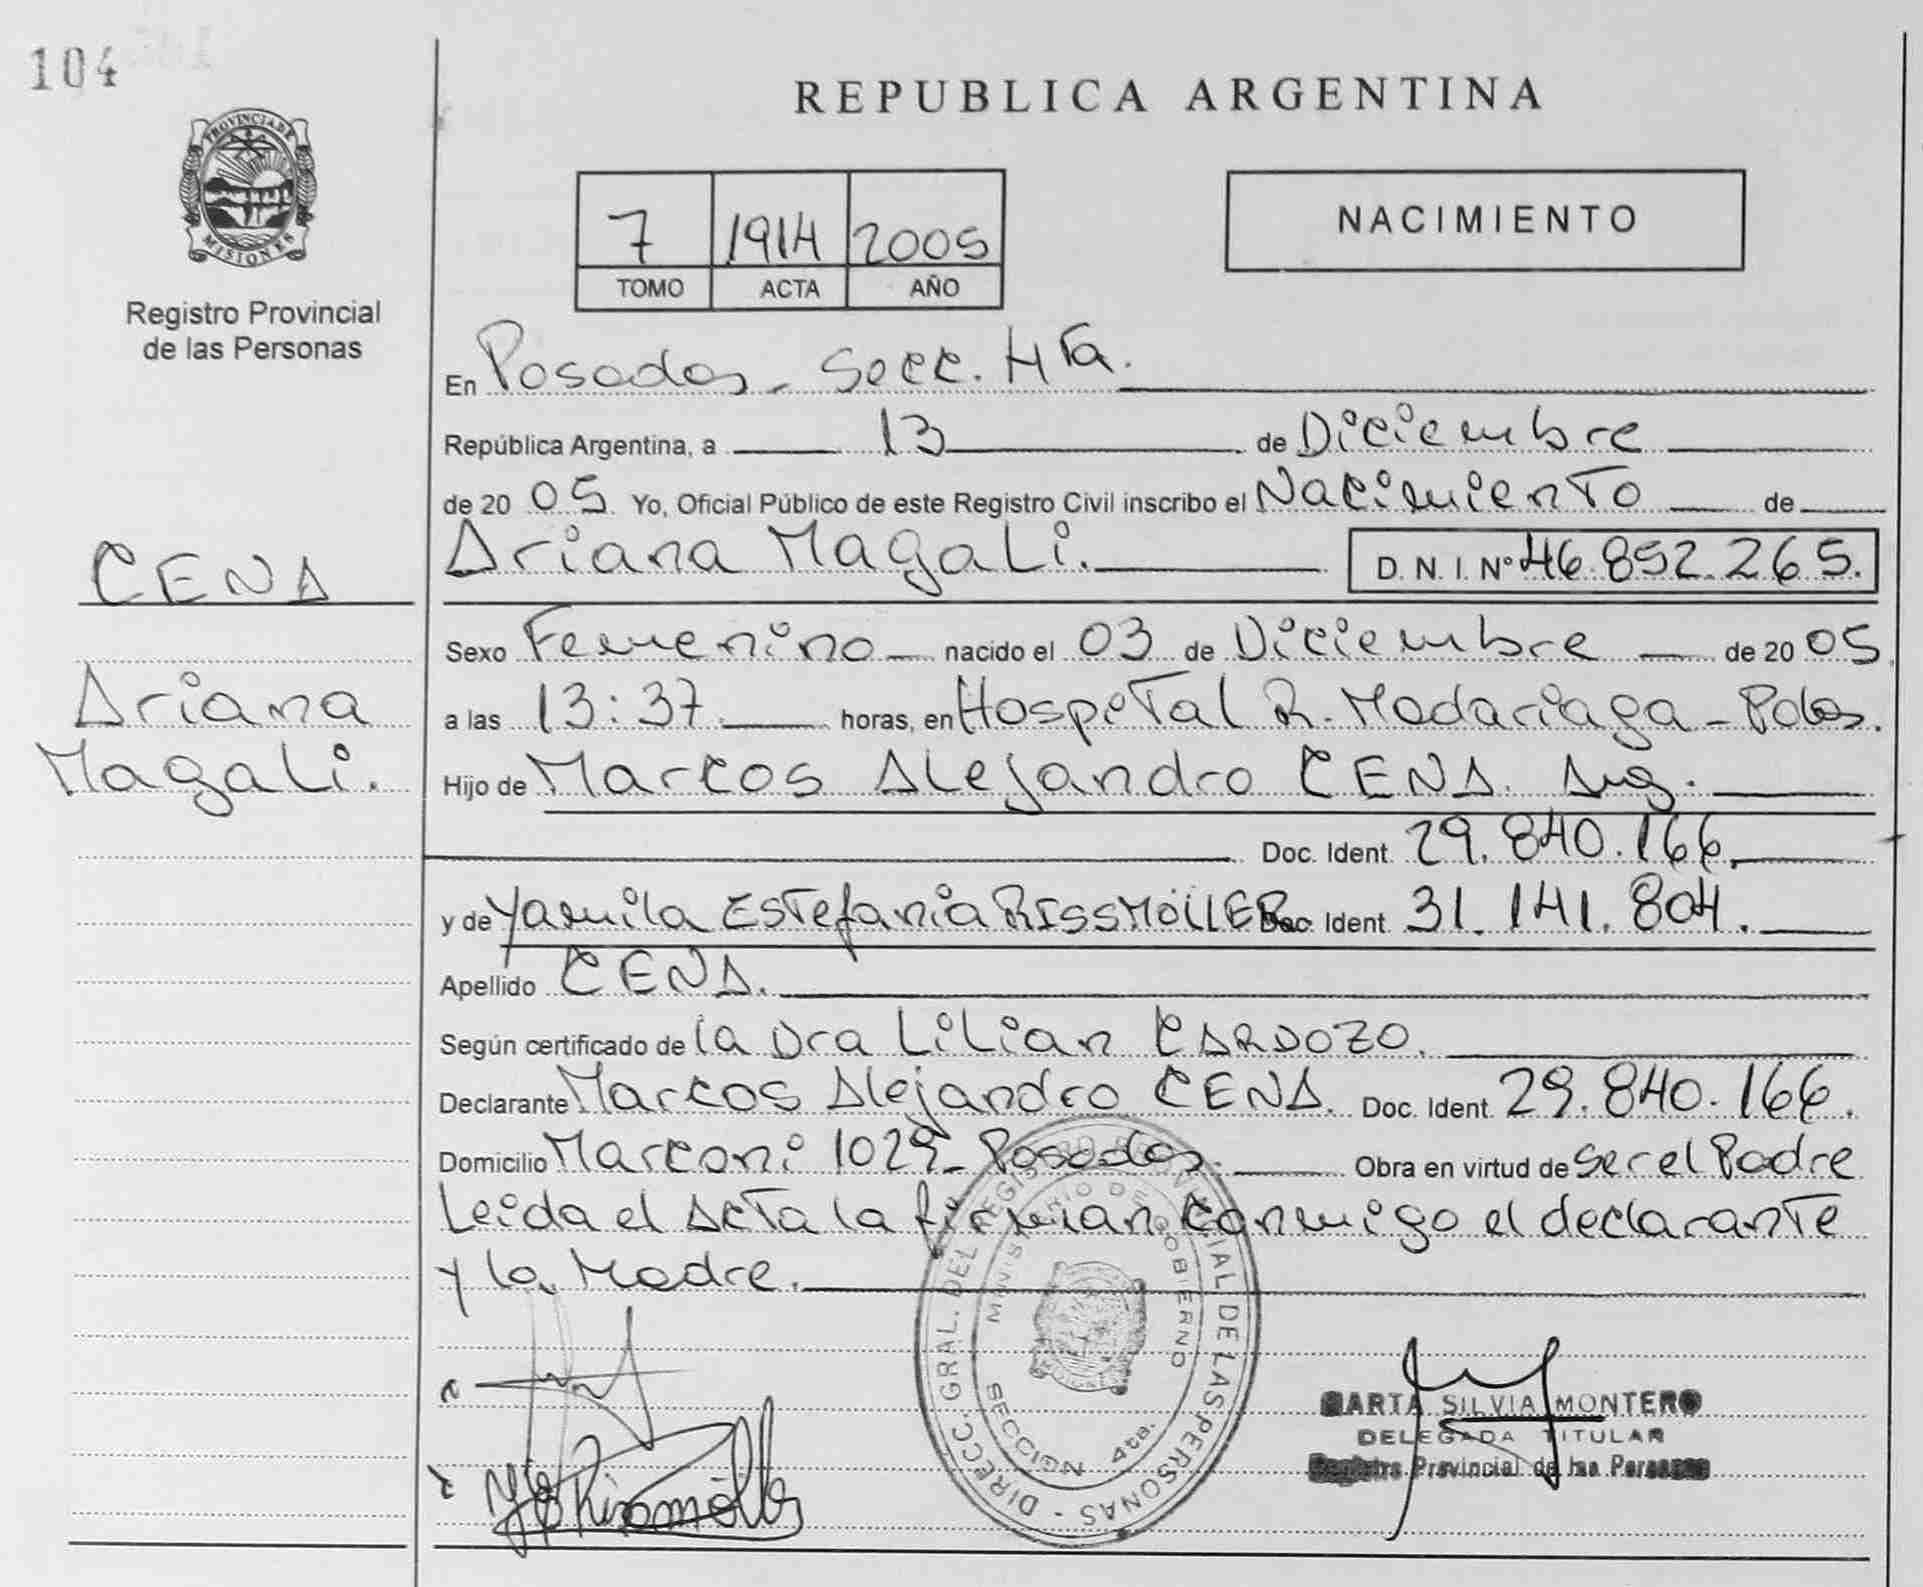 104
REPUBLICA ARGENTINA
PROVINCIA DE
MISIONES
Registro Provincial
de las Personas
7 1914 2005
TOMO ACTA AÑO
NACIMIENTO
En Posadas - Secc. 4ta.
República Argentina, a 13 de Diciembre
de 20 05 Yo, Oficial Público de este Registro Civil inscribo el Nacimiento de
Ariana Magali. D.N.I. Nº 46.852.265.
CENA
Ariana
Magali.
Sexo Femenino nacido el 03 de Diciembre de 20 05
a las 13:37 horas, en Hospital R. Madariaga - Pdas.
Hijo de Marcos Alejandro CENA. Arg.
Doc. Ident. 29.840.166.
y de Yamila Estefania RISSMÖLLER Doc. Ident. 31.141.804.
Apellido CENA.
Según certificado de la Dra Lilian CARDOZO.
Declarante Marcos Alejandro CENA. Doc. Ident. 29.840.166.
Domicilio Marconi 1029 - Posadas. Obra en virtud de ser el Padre
Leida el Acta la firman conmigo el declarante
y la Madre.
DIRECC. GRAL. DEL REGISTRO PROVINCIAL DE LAS PERSONAS -
MINISTERIO DE GOBIERNO
SECCION 4ta.
MARTA SILVIA MONTERO
DELEGADA TITULAR
Registro Provincial de las Personas